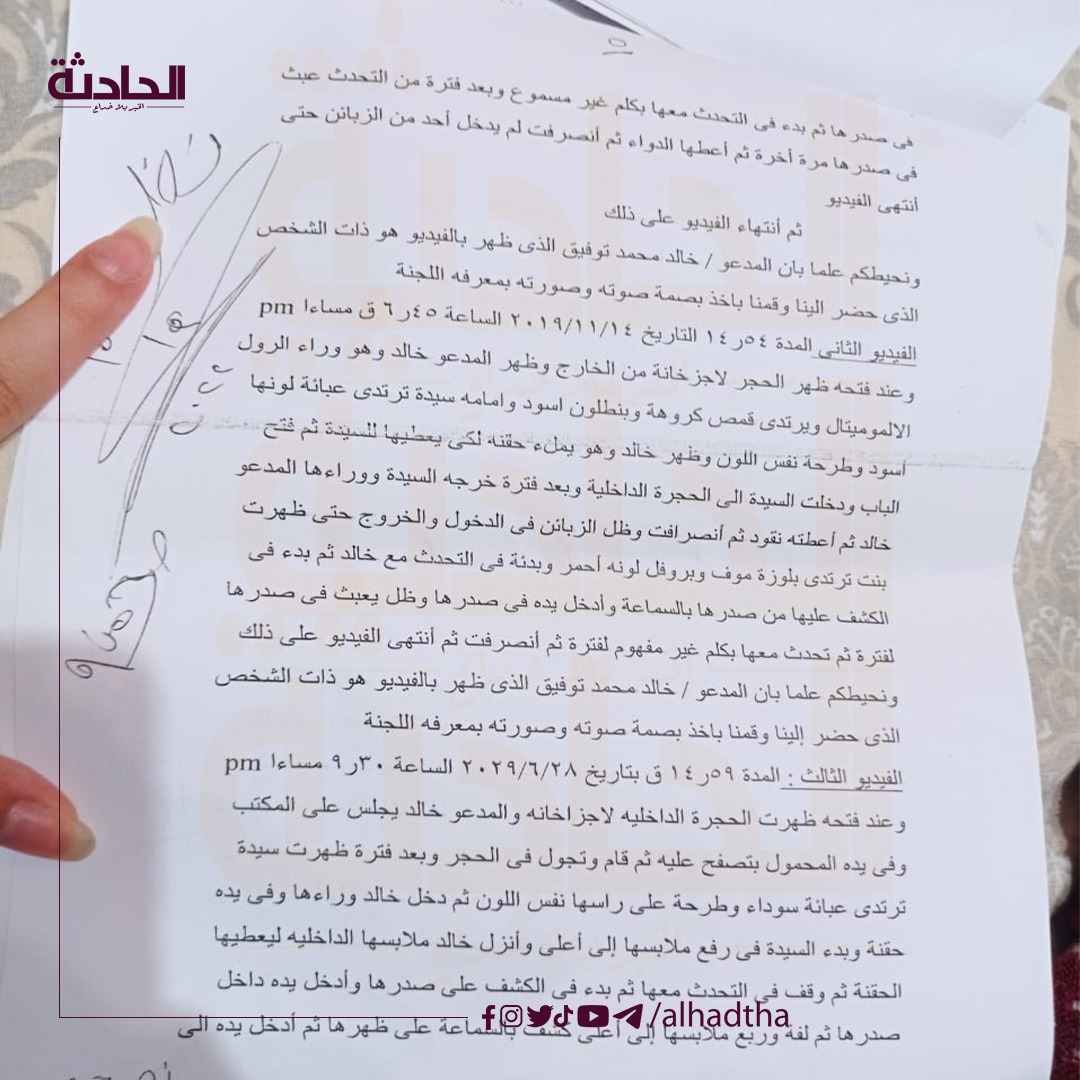 الحادثة
الخبر بلا خداع
٥
فى صدرها ثم بدء فى التحدث معها بكلم غير مسموع وبعد فترة من التحدث عبث
فى صدرها مرة أخرة ثم أعطها الدواء ثم أنصرفت لم يدخل أحد من الزبائن حتى
أنتهى الفيديو
ثم أنتهاء الفيديو على ذلك
ونحيطكم علما بان المدعو / خالد محمد توفيق الذى ظهر بالفيديو هو ذات الشخص
الذى حضر الينا وقمنا باخذ بصمة صوته وصورته بمعرفه اللجنة
الفيديو الثانى المدة ٥٤ر١٤ التاريخ ٢٠١٩/١١/١٤ الساعة ٤٥ر٦ ق مساءا pm
وعند فتحه ظهر الحجر لاجزخانة من الخارج وظهر المدعو خالد وهو وراء الرول
الالوموميتال ويرتدى قمص كروهة وبنطلون اسود وامامه سيدة ترتدى عبائة لونها
أسود وطرحة نفس اللون وظهر خالد وهو يملء حقنه لكى يعطيها للسيدة ثم فتح
الباب ودخلت السيدة الى الحجرة الداخلية وبعد فترة خرجه السيدة ووراءها المدعو
خالد ثم أعطته نقود ثم أنصرافت وظل الزبائن فى الدخول والخروج حتى ظهرت
بنت ترتدى بلوزة موف وبروفل لونه أحمر وبدئة فى التحدث مع خالد ثم بدء فى
الكشف عليها من صدرها بالسماعة وأدخل يده فى صدرها وظل يعبث فى صدرها
لفترة ثم تحدث معها بكلم غير مفهوم لفترة ثم أنصرفت ثم أنتهى الفيديو على ذلك
ونحيطكم علما بان المدعو / خالد محمد توفيق الذى ظهر بالفيديو هو ذات الشخص
الذى حضر إلينا وقمنا باخذ بصمة صوته وصورته بمعرفه اللجنة
الفيديو الثالث : المدة ٥٩ر١٤ ق بتاريخ ٢٠٢٩/٦/٢٨ الساعة ٣٠ر٩ مساءا pm
وعند فتحه ظهرت الحجرة الداخليه لاجزاخانه والمدعو خالد يجلس على المكتب
وفى يده المحمول بتصفح عليه ثم قام وتجول فى الحجر وبعد فترة ظهرت سيدة
ترتدى عبائة سوداء وطرحة على راسها نفس اللون ثم دخل خالد وراءها وفى يده
حقنة وبدء السيدة فى رفع ملابسها إلى أعلى وأنزل خالد ملابسها الداخليه ليعطيها
الحقنة ثم وقف فى التحدث معها ثم بدء فى الكشف على صدرها وأدخل يده داخل
صدرها ثم لفة وربع ملابسها إلى أعلى كشف بالسماعة على ظهرها ثم أدخل يده الى
/alhadtha